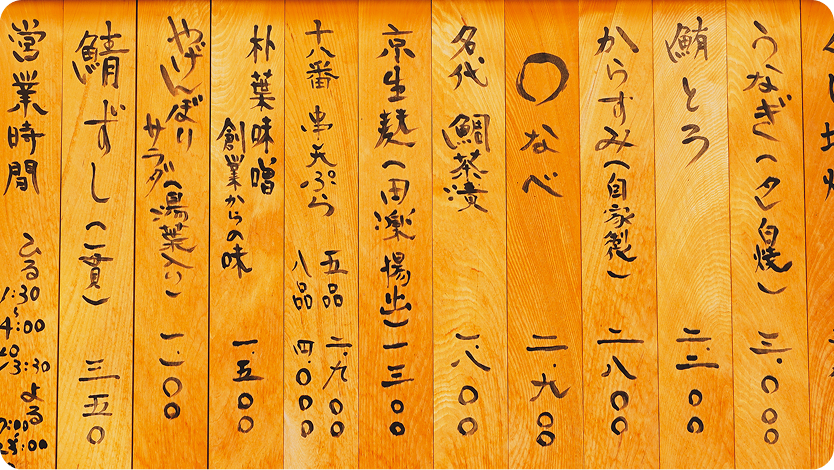 うなぎ(タレ 白焼) 三.〇〇〇
鮪とろ 二.三〇〇
からすみ(自家製) 二.八〇〇
〇なべ 二.九〇〇
名代 鯛茶漬 一.八〇〇
京生麩(田楽 揚出) 一三〇〇
十八番 串天ぷら 五品 二.九〇〇
八品 四.〇〇〇
朴葉味噌
創業からの味 一.五〇〇
やげんぼり
サラダ(湯葉入り) 一.一〇〇
鯖ずし(一貫) 三五〇
営業時間 ひる 1:30
4:00
3:30
よる